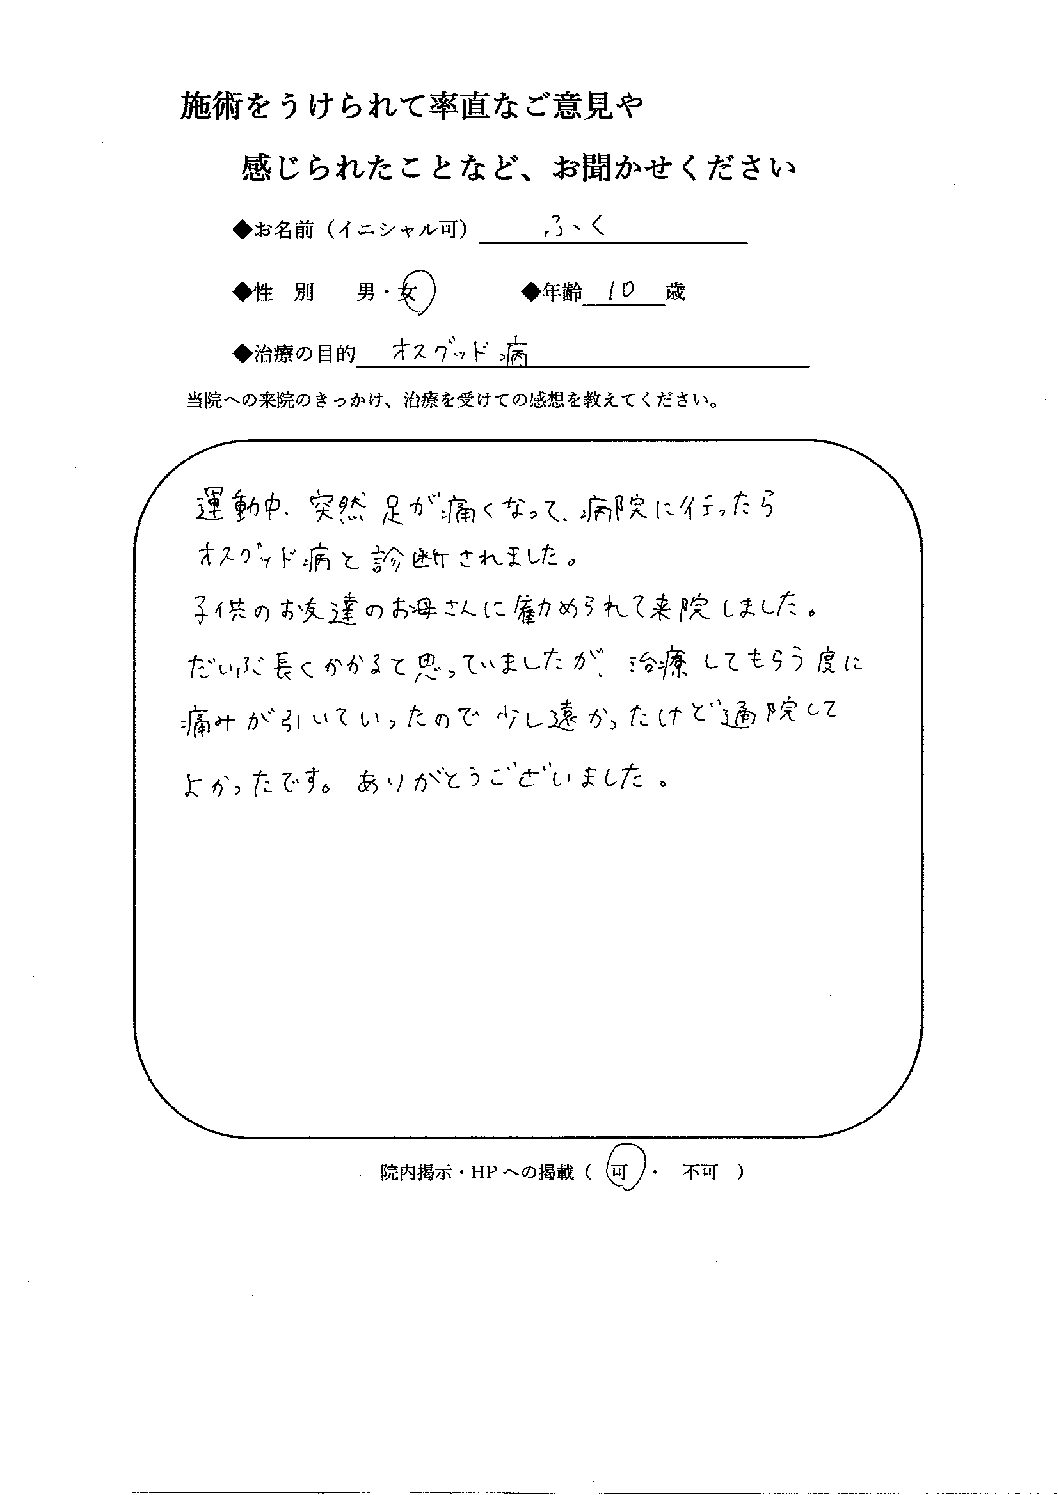 施術をうけられて率直なご意見や
感じられたことなど、お聞かせください
◆お名前（イニシャル可） ふ、く
◆性　別　　男・女　　　◆年齢 10 歳
◆治療の目的 オスグッド病
当院への来院のきっかけ、治療を受けての感想を教えてください。
運動中、突然足が痛くなって、病院に行ったら
オスグッド病と診断されました。
子供のお友達のお母さんに勧められて来院しました。
だいぶ長くかかると思っていましたが、治療してもらう度に
痛みが引いていったので少し遠かったけど通院して
よかったです。ありがとうございました。
院内掲示・HPへの掲載（　可・　不可　）